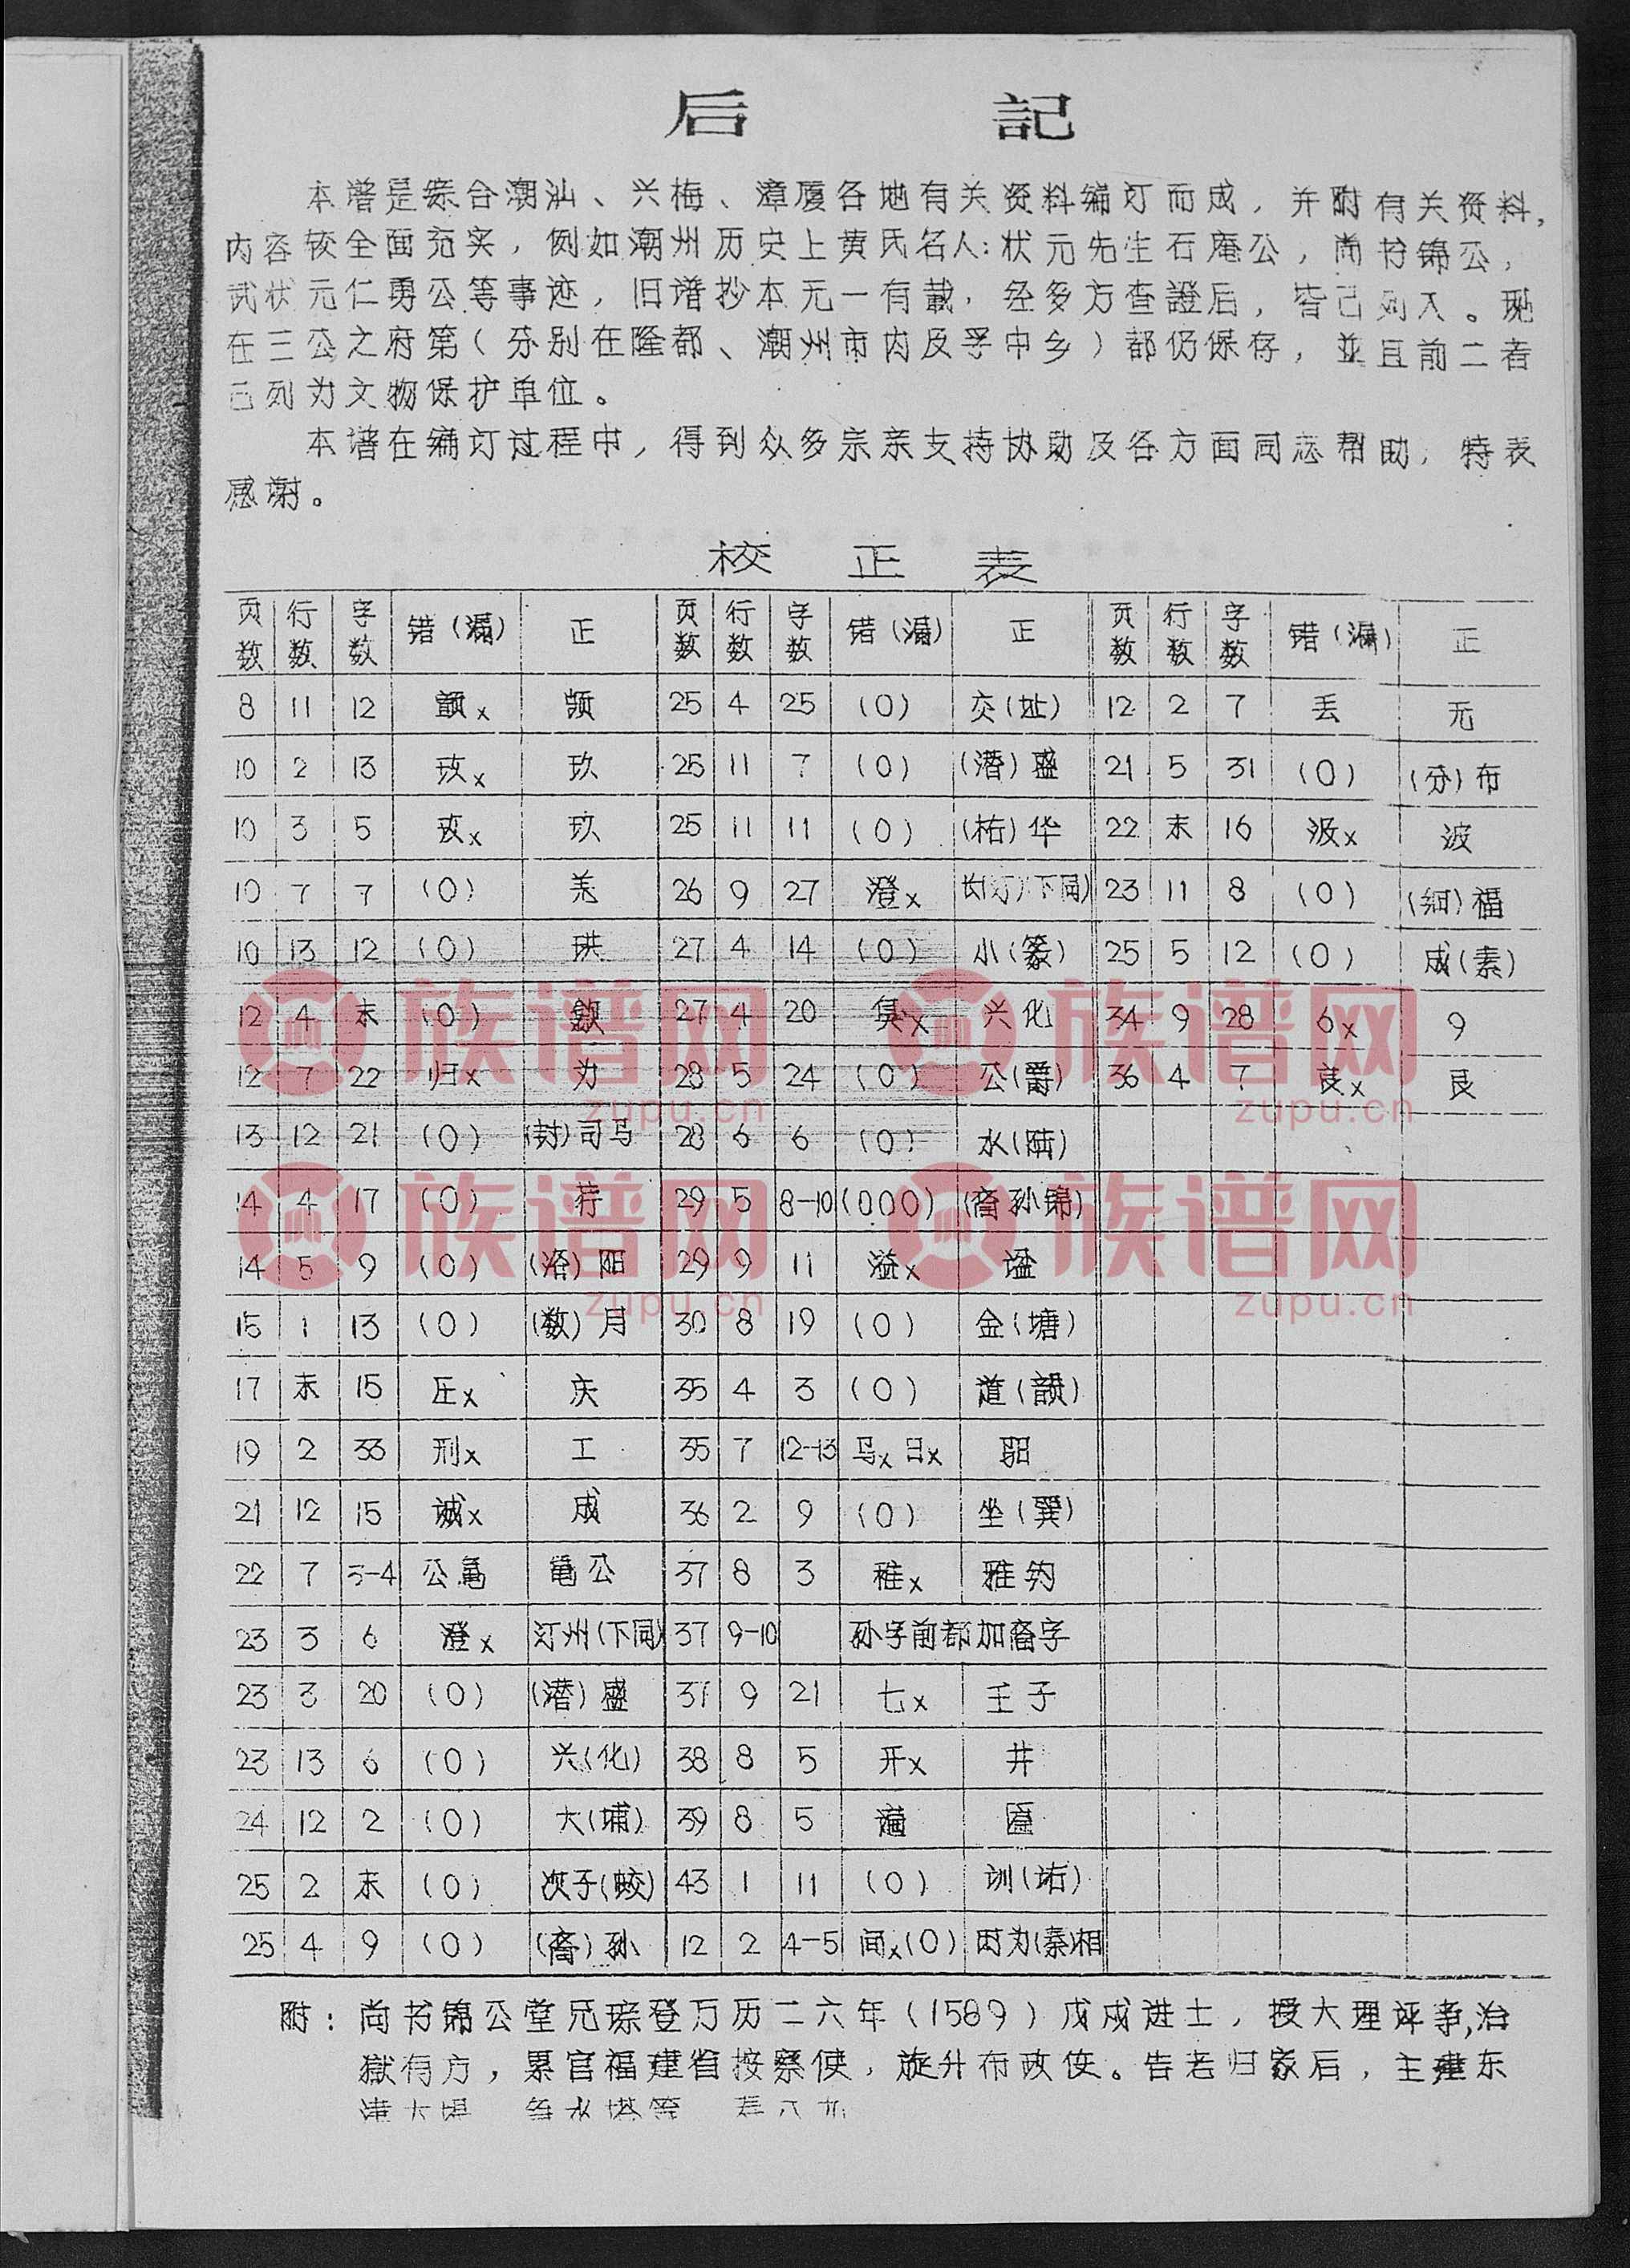 后 記
本谱是综合潮汕、兴梅、漳厦各地有关资料编订而成，并附有关资料，
内容较全面充实，例如潮州历史上黄氏名人：状元先生石庵公，尚书锦公，
武状元仁勇公等事迹，旧谱抄本无一有载，经多方查證后，皆已列入。现
在三公之府第（分别在隆都、潮州市内及孚中乡）都仍保存，並且前二者
已列为文物保护单位。
本谱在编订过程中，得到众多宗亲支持协助及各方面同志帮助，特表
感谢。
校 正 表
页数 行数 字数 错（漏） 正 页数 行数 字数 错（漏） 正 页数 行数 字数 错（漏） 正
8 11 12 颛x 颛 25 4 25 (0) 交(址) 12 2 7 丢 无
10 2 13 玫x 玖 25 11 7 (0) (潜)盛 21 5 31 (0) (分)布
10 3 5 玫x 玖 25 11 11 (0) (祐)华 22 末 16 汲x 波
10 7 7 (0) 羌 26 9 27 澄x 长(汀)(下同) 23 11 8 (0) 福
10 13 12 (0) 珙 27 4 14 (0) 小(篆) 25 5 12 (0) 成(素)
12 4 末 (0) 27 4 20 具x 兴化 34 9 28 6x 9
12 7 22 归x 为 28 5 24 (0) 公(爵) 36 4 7 良x 艮
13 12 21 (0) (封)司马 28 6 6 (0) 水(陆)
14 4 17 (0) 29 5 8-10 (000) (裔孙锦)
14 5 9 (0) 阳 29 9 11 溢x 谥
15 1 13 (0) (数)月 30 8 19 (0) 金(塘)
17 末 15 庄x 庆 35 4 3 (0) 道(韻)
19 2 33 刑x 工 35 7 12-13 马x 日x 馹
21 12 15 诚x 成 36 2 9 (0) 坐(巽)
22 7 3-4 公龟 龟公 37 8 3 稚x 雅钧
23 3 6 澄x 汀州(下同) 37 9-10 孙字前都加裔字
23 3 20 (0) (潜)盛 37 9 21 七x 壬子
23 13 6 (0) 兴(化) 38 8 5 开x 井
24 12 2 (0) 大(埔) 39 8 5
25 2 末 (0) 次子(蛟) 43 1 11 (0) 训(诂)
25 4 9 (0) (裔)孙 12 2 4-5 间x(0) 因为(秦)相
附：尚书锦公堂兄琮登万历二六年（1589）戊戌进士，授大理评事，治
獄有方，累官福建省按察使，旋升布政使。告老归家后，主建东
族谱网
zupu.cn
族谱网
zupu.cn
族谱网
zupu.cn
族谱网
zupu.cn